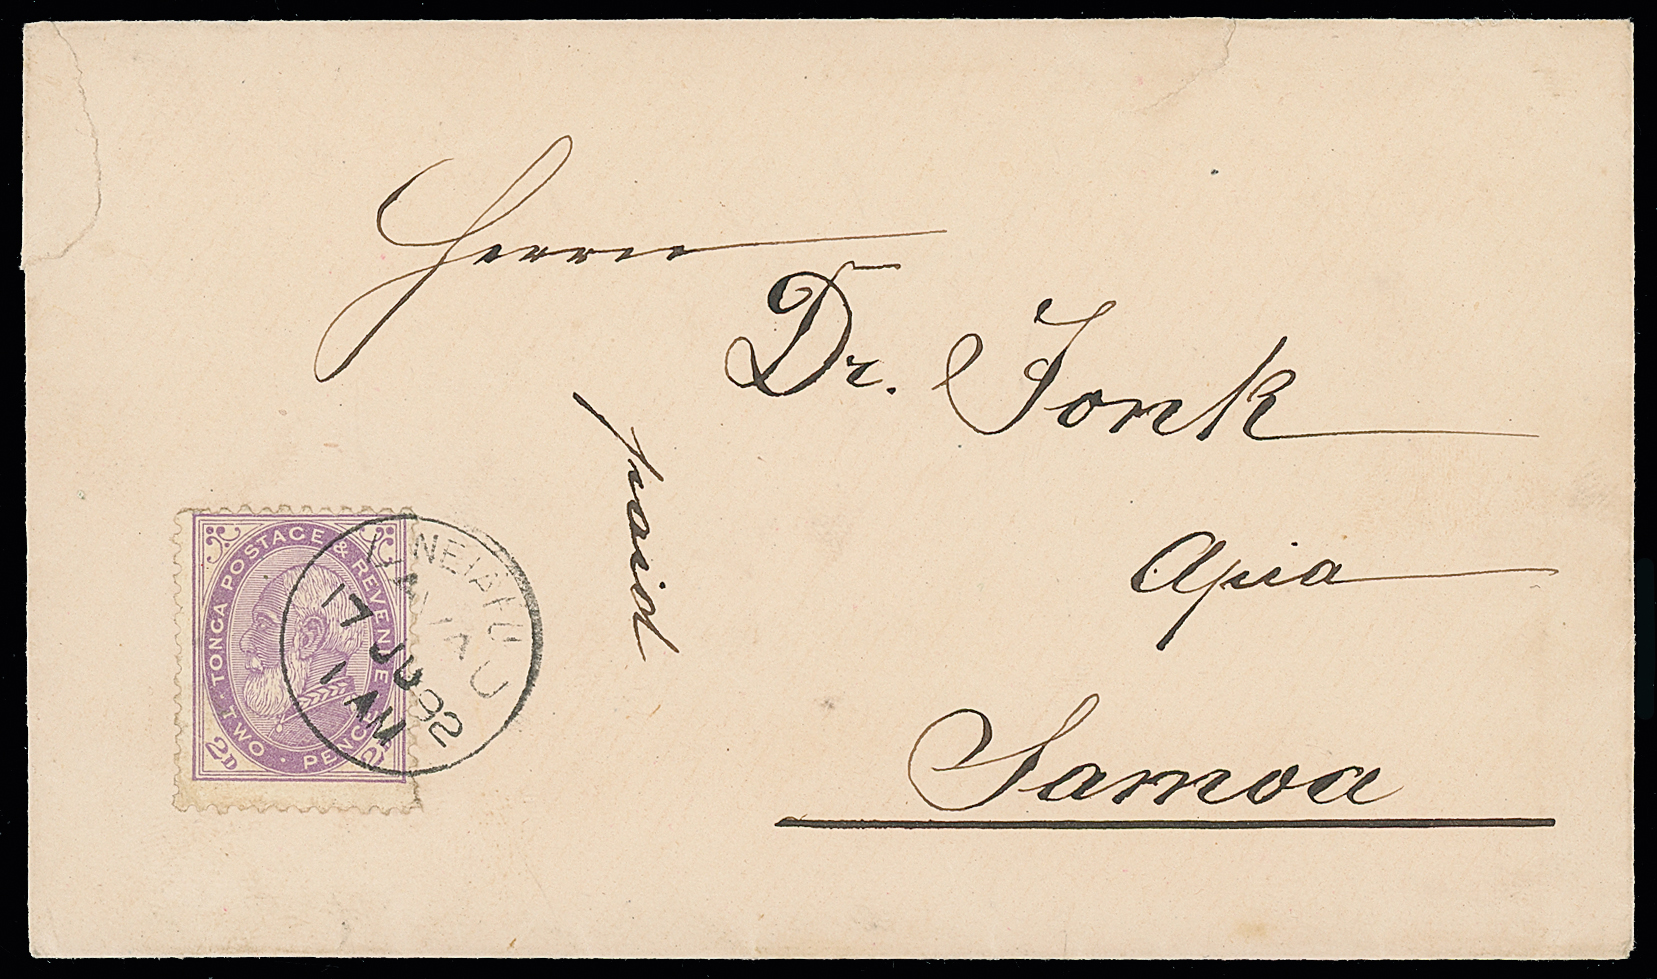 Herrn
Dr. Fonk
Apia
Samoa
paid
TONGA POSTAGE & REVENUE
TWO PENCE
2D
NEIAFU
VAVAU
17 JU 92
1 AM